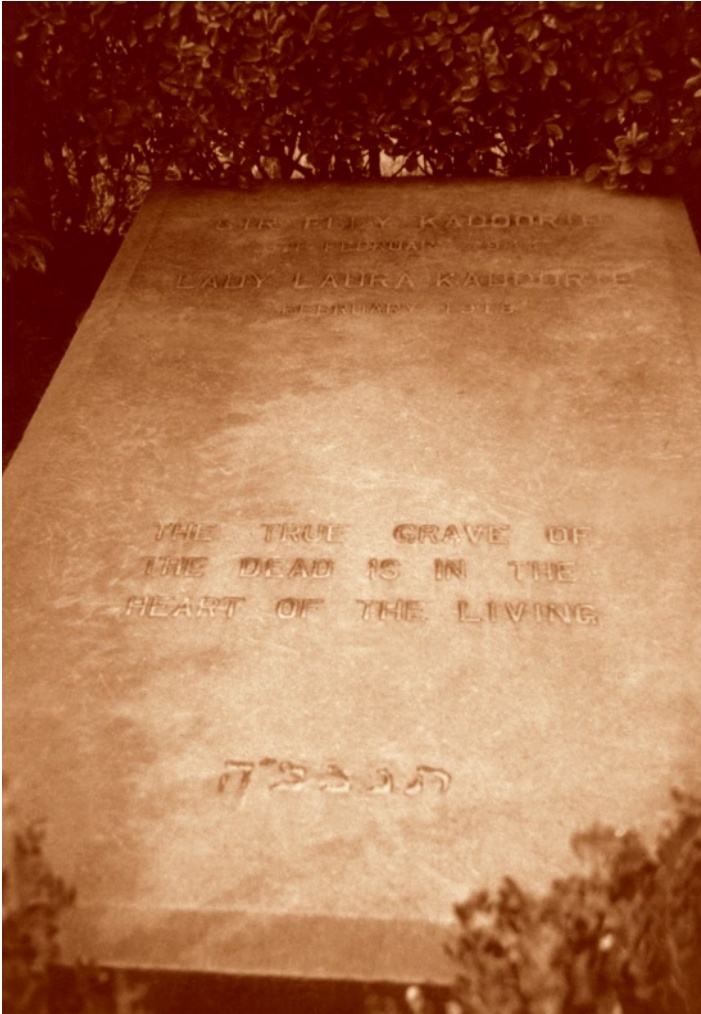 SIR ELLY KADOORIE
FEBRUARY
LADY LAURA KADOORIE
FEBRUARY
THE TRUE GRAVE OF
THE DEAD IS IN THE
HEART OF THE LIVING
תנצב״ה